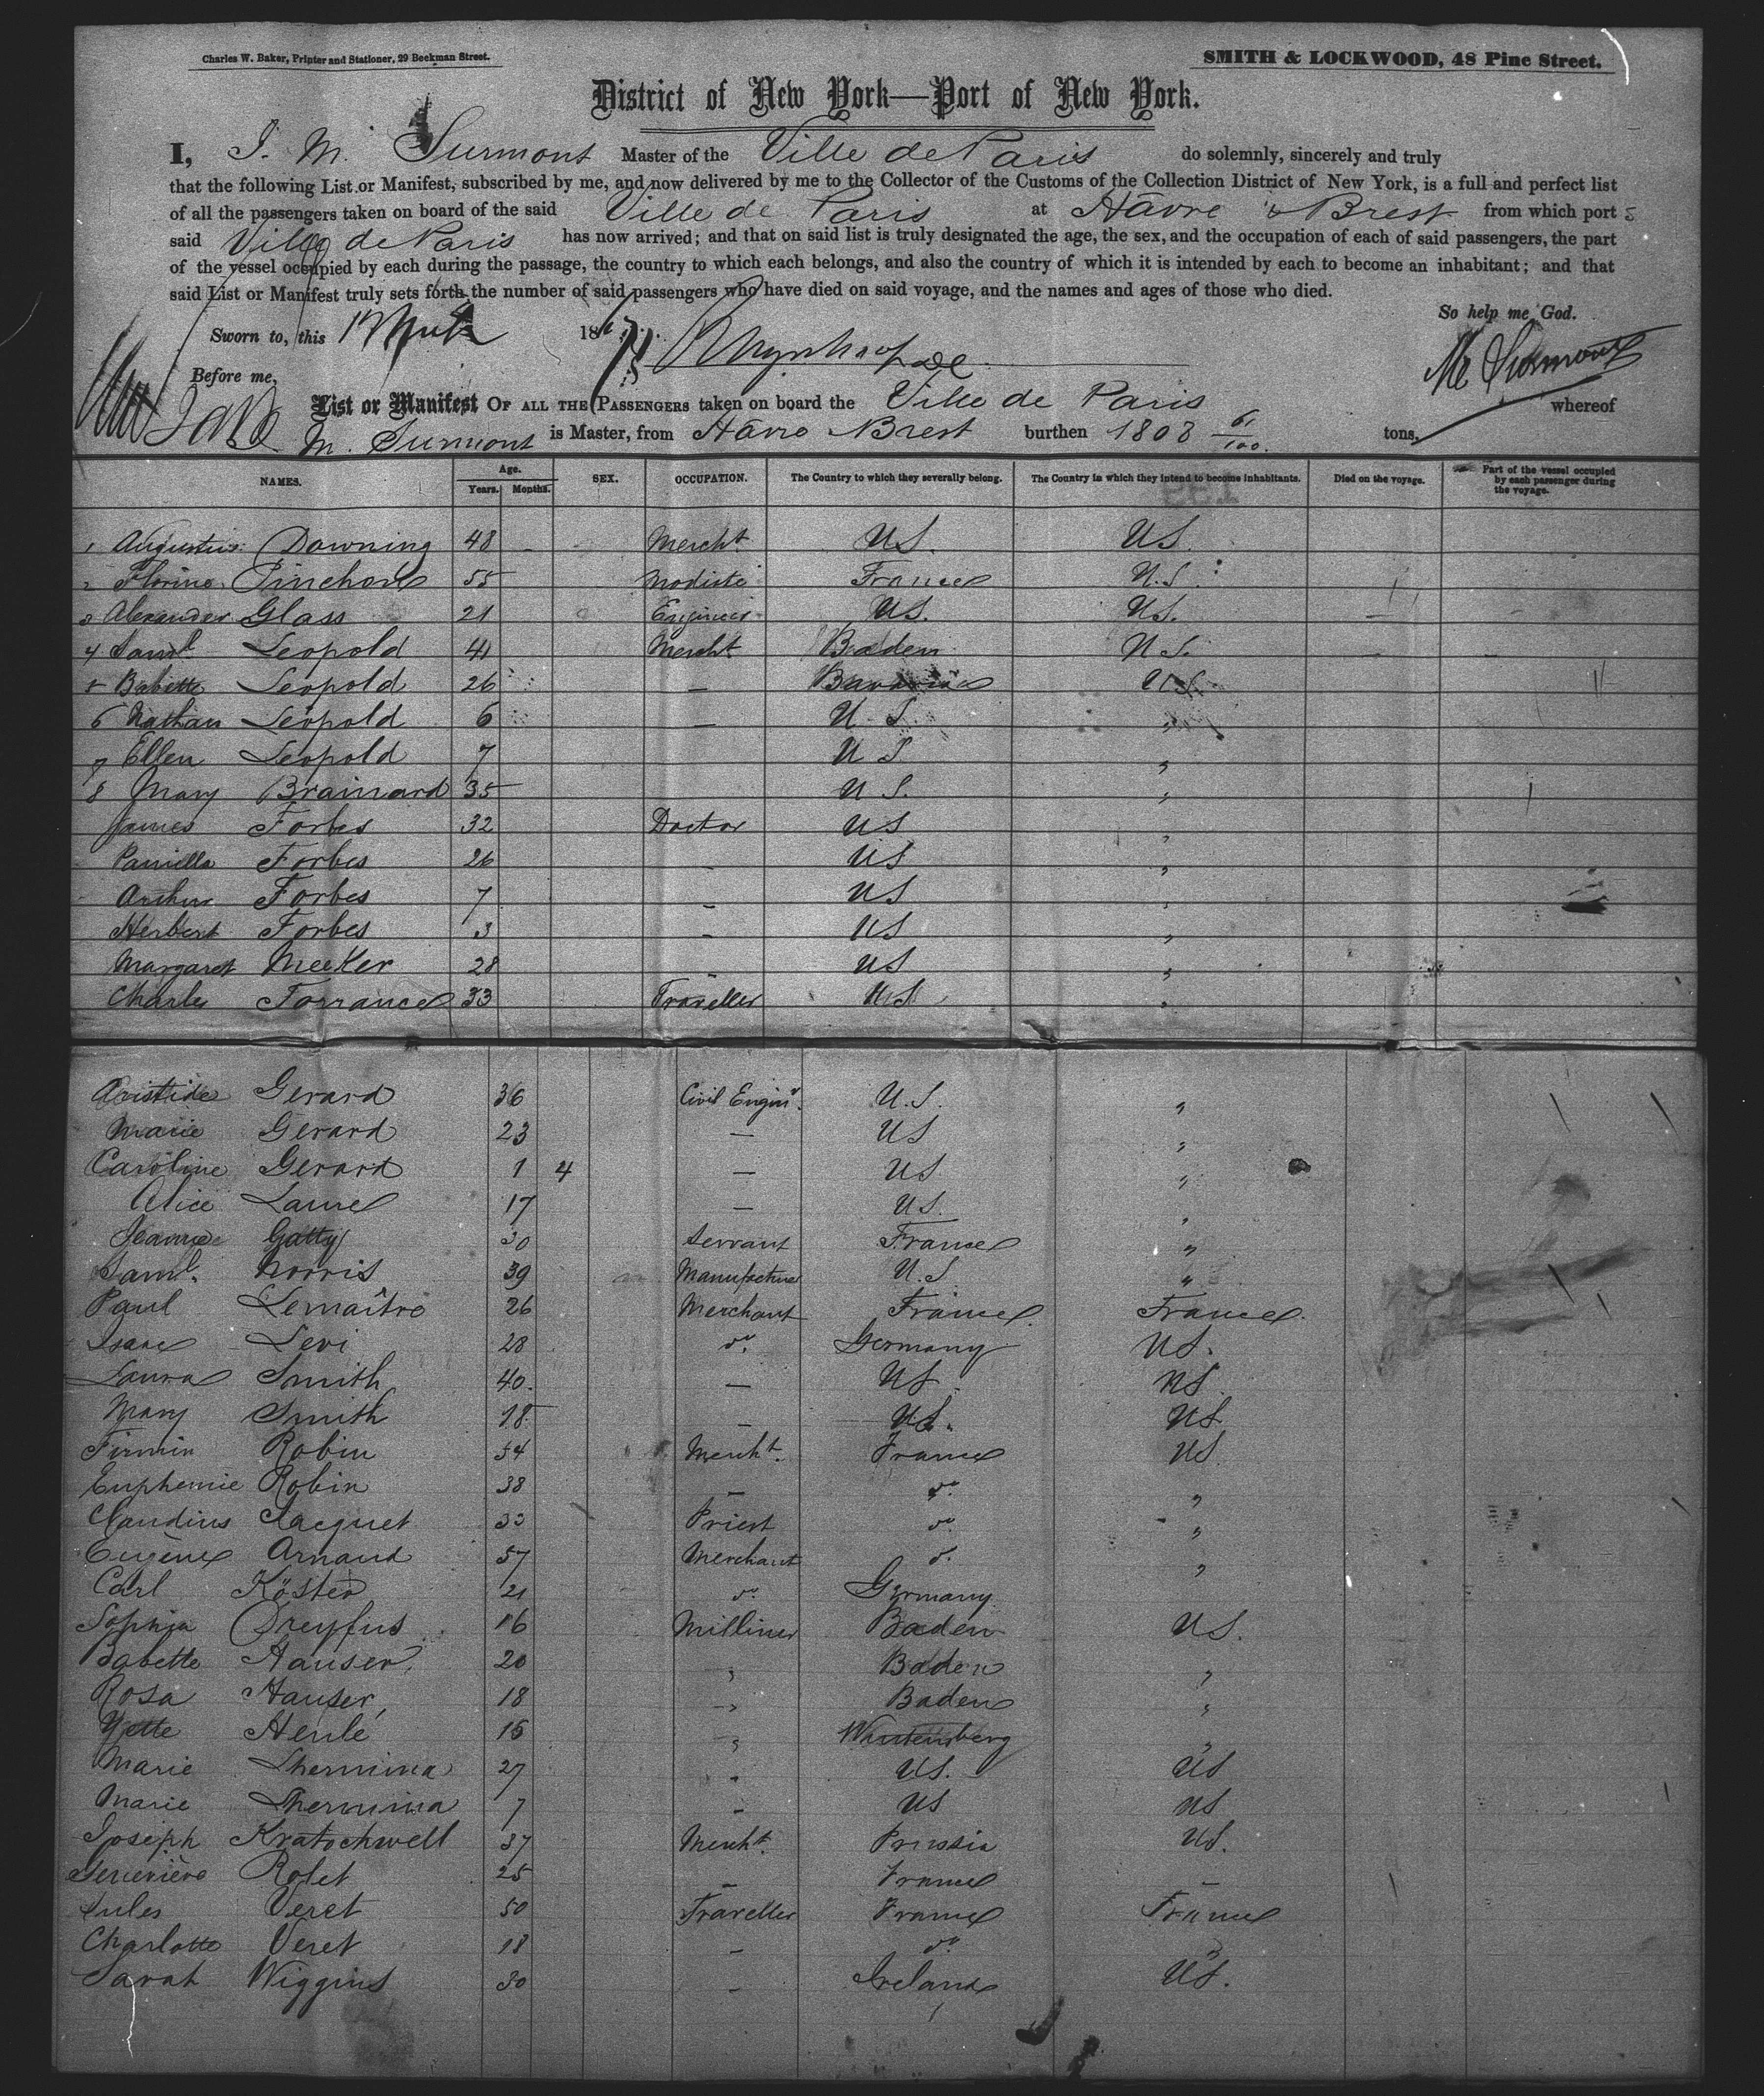 Charles W. Baker, Printer and Stationer, 29 Beekman Street.
SMITH & LOCKWOOD, 48 Pine Street.
District of New York—Port of New York.
I, J. M. Surmont Master of the Ville de Paris do solemnly, sincerely and truly
that the following List or Manifest, subscribed by me, and now delivered by me to the Collector of the Customs of the Collection District of New York, is a full and perfect list
of all the passengers taken on board of the said Ville de Paris at Havre & Brest from which port s
said Ville de Paris has now arrived; and that on said list is truly designated the age, the sex, and the occupation of each of said passengers, the part
of the vessel occupied by each during the passage, the country to which each belongs, and also the country of which it is intended by each to become an inhabitant; and that
said List or Manifest truly sets forth the number of said passengers who have died on said voyage, and the names and ages of those who died.
So help me God.
Sworn to, this 186
Surmont
Before me,
List or Manifest OF ALL THE PASSENGERS taken on board the Ville de Paris whereof
M. Surmont is Master, from Havre Brest burthen 1808 61/100 tons.
NAMES. Age. Years. Months. SEX. OCCUPATION. The Country to which they severally belong. The Country in which they intend to become inhabitants. Died on the voyage. Part of the vessel occupied by each passenger during the voyage.
1 Augustus Downing 48 Mercht US. US.
2 Florine Pinchon 55 Modiste France U.S.
3 Alexander Glass 21 Engineer US. US.
4 Saml Leopold 41 Mercht Baden U S.
5 Babette Leopold 26 — Bavaria US
6 Nathan Leopold 6 — U. S. "
7 Ellen Leopold 7 U S "
8 Mary Brainard 35 U S. "
James Forbes 32 Doctor US "
Forbes 26 - US "
Arthur Forbes 7 - US "
Herbert Forbes 3 - US "
Margaret Meeker 28 - US "
Charles Torrance 33 Traveller US "
Aristide Gerard 36 Civil Enginr. U.S. "
Marie Gerard 23 — US "
Caroline Gerard 1 4 — US "
Alice Laure 17 — US. "
Jeanne Gatty 30 Servant France "
Saml. Norris 39 Manufacturer U.S. "
Paul Lemaître 26 Merchant France. France.
Isaac Levi 28 do. Germany US.
Laura Smith 40. — US. US.
Mary Smith 18 — US. US
Firmin Robin 54 Mercht. France US
Euphemie Robin 38 — do. "
Claudius Jacquet 33 Priest do. "
Eugène Arnaud 57 Merchant do. "
Carl Köster 21 do. Germany.
Sophia Dreyfus 16 Milliner Baden US.
Babette Hauser, 20 " Baden "
Rosa Hauser, 18 " Baden "
Yette Henlé 15 " Wurtemberg "
Marie Lhermina 27 " US. US
Marie Lhermina 7 - US US
Joseph Kratochwell 37 Mercht. Prussia US.
Geneviève Rolet 25 - France -
Jules Veret 50 Traveller France France
Charlotte Veret 18 - do. "
Sarah Wiggins 30 - Ireland US.